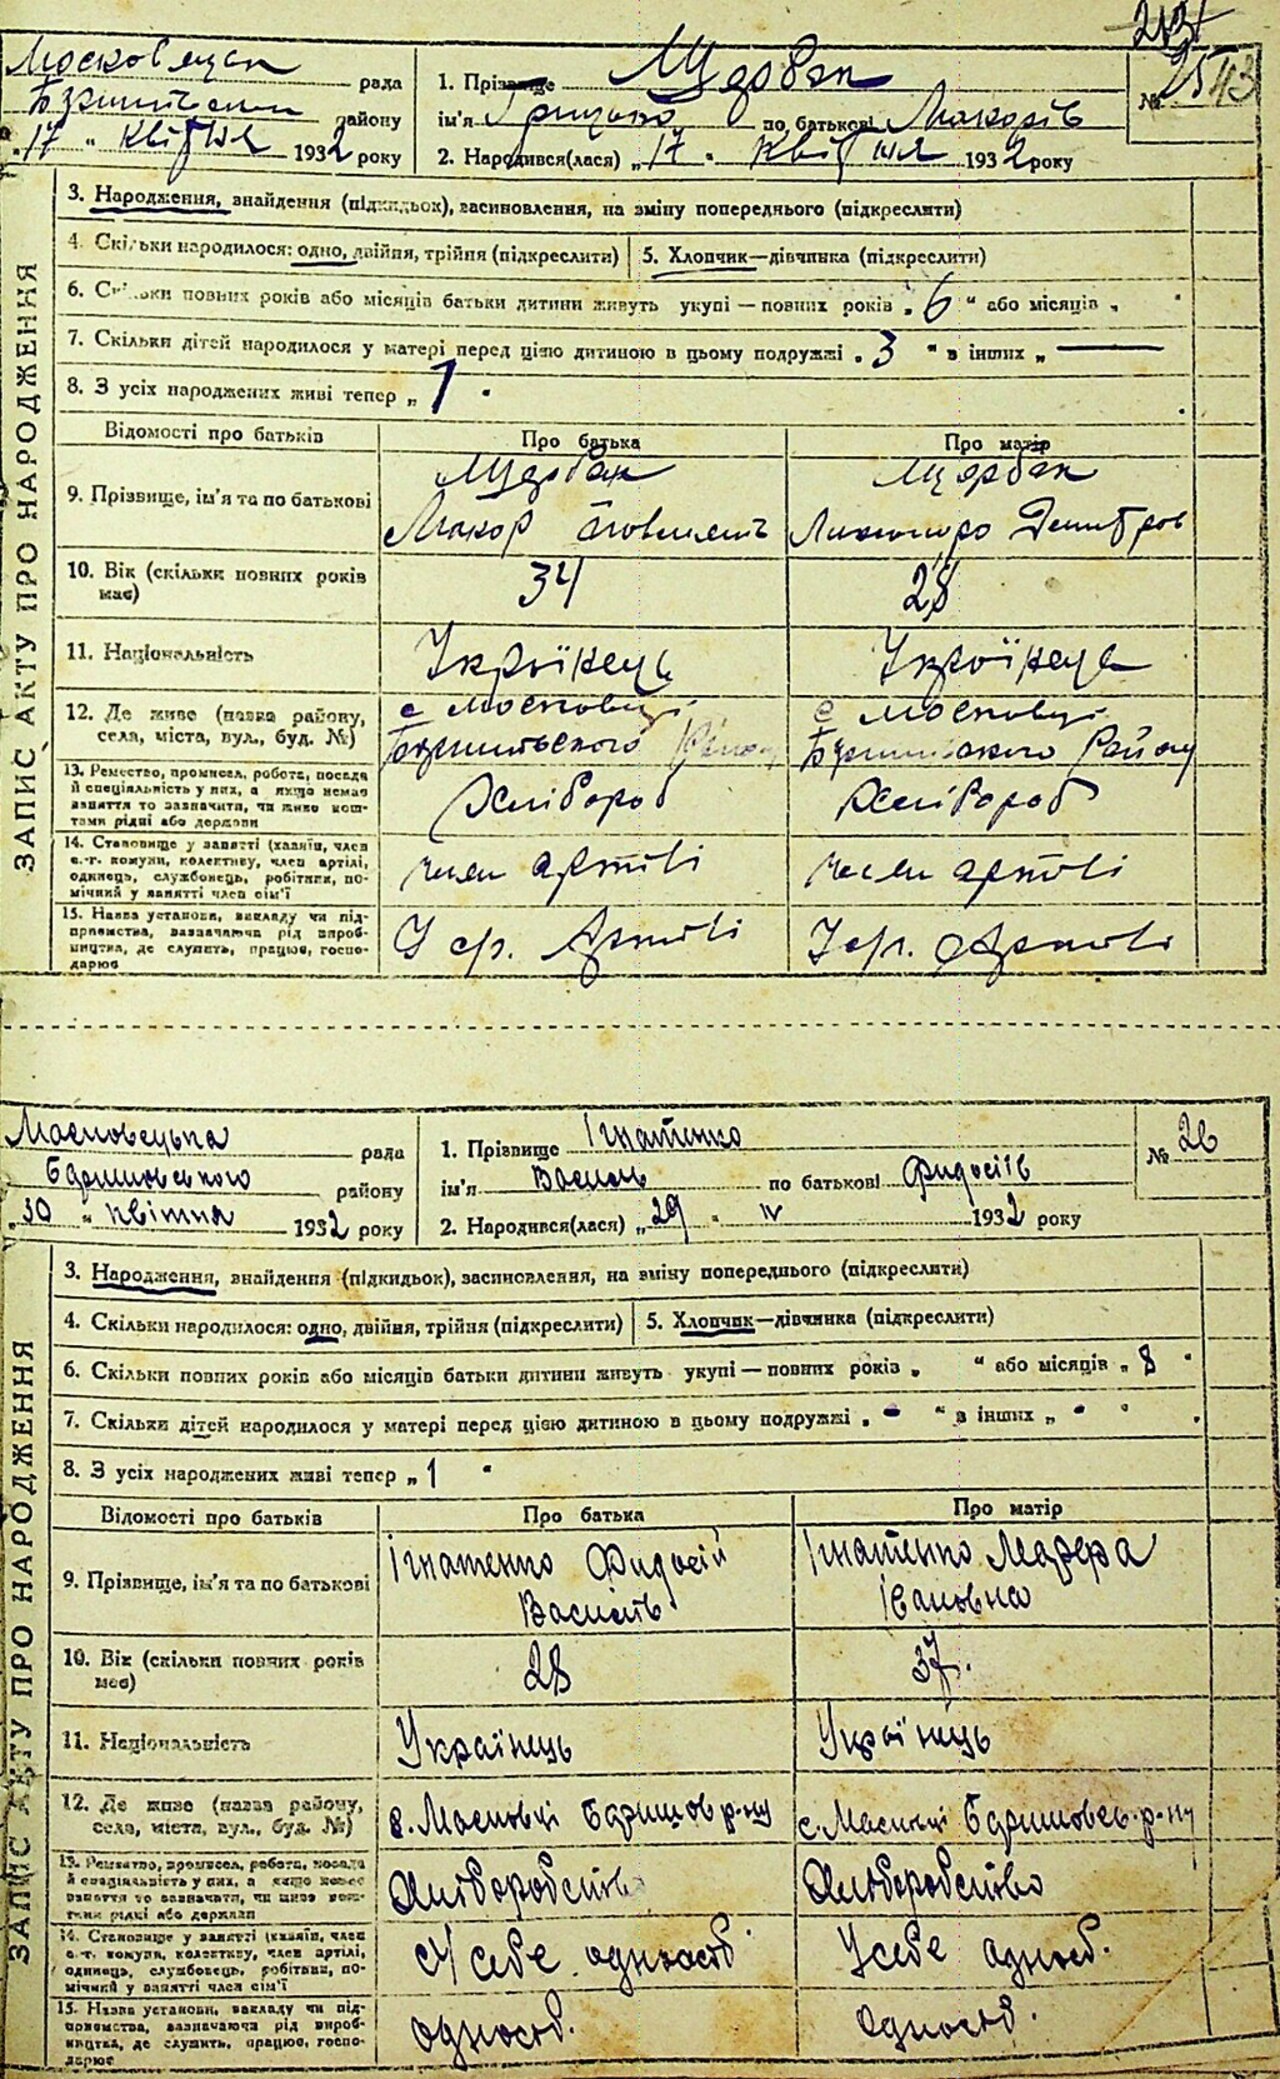 213
рада
району
17 " квітня 1932 року
1. Прізвище Щербак
ім'я Грицько по батькові Макарів
2. Народився(лася) „17 " квітня 1932 року
№ 25 43
ЗАПИС АКТУ ПРО НАРОДЖЕННЯ
3. Народження, знайдення (підкидьок), засиновлення, на зміну попереднього (підкреслити)
4. Скільки народилося: одно, двійня, трійня (підкреслити)
5. Хлопчик—дівчинка (підкреслити)
6. Скільки повних років або місяців батьки дитини живуть укупі — повних років „ 6 " або місяців „ "
7. Скільки дітей народилося у матері перед цією дитиною в цьому подружжі „ 3 " в інших „ —
8. З усіх народжених живі тепер „ 1 "
Відомості про батьків
Про батька
Про матір
9. Прізвище, ім'я та по батькові
Щербак
Макар
Щербак
10. Вік (скільки повних років має)
34
28
11. Національність
Українець
Українець
12. Де живе (назва району, села, міста, вул., буд. №)
с Московці
с Московці
Району
13. Ремество, промисел, робота, посада
й спеціяльність у них, а якщо немає
заняття то зазначити, чи живе кош-
тами рідні або держави
Хлібороб
Хлібороб
14. Становище у занятті (хазяїн, член
с.-г. комуни, колективу, член артілі,
одинець, службовець, робітник, по-
мічний у занятті член сім'ї
член артілі
член артілі
15. Назва установи, закладу чи під-
приємства, зазначаючи рід вироб-
ництва, де служить, працює, госпо-
дарює
У с/г. Артілі
У с/г. Артілі
рада
району
„30 " квітня 1932 року
1. Прізвище Ігнатенко
ім'я Василь по батькові Фидосіїв
2. Народився(лася) „29 " IV 1932 року
№ 26
ЗАПИС АКТУ ПРО НАРОДЖЕННЯ
3. Народження, знайдення (підкидьок), засиновлення, на зміну попереднього (підкреслити)
4. Скільки народилося: одно, двійня, трійня (підкреслити)
5. Хлопчик—дівчинка (підкреслити)
6. Скільки повних років або місяців батьки дитини живуть укупі — повних років „ " або місяців „ 8 "
7. Скільки дітей народилося у матері перед цією дитиною в цьому подружжі „ - " в інших „ - "
8. З усіх народжених живі тепер „ 1 "
Відомості про батьків
Про батька
Про матір
9. Прізвище, ім'я та по батькові
Ігнатенко Фидосій
Ігнатенко
Івановна
10. Вік (скільки повних років має)
28
37.
11. Національність
Українець
Українець
12. Де живе (назва району, села, міста, вул., буд. №)
р-ну
р-ну
13. Ремество, промисел, робота, посада
й спеціяльність у них, а якщо немає
заняття то зазначити, чи живе кош-
тами рідні або держави
Хліборобство
Хліборобство
14. Становище у занятті (хазяїн, член
с.-г. комуни, колективу, член артілі,
одинець, службовець, робітник, по-
мічний у занятті член сім'ї
У себе одноосіб
У себе одноос.
15. Назва установи, закладу чи під-
приємства, зазначаючи рід вироб-
ництва, де служить, працює, госпо-
дарює
одноосіб.
одноосіб.